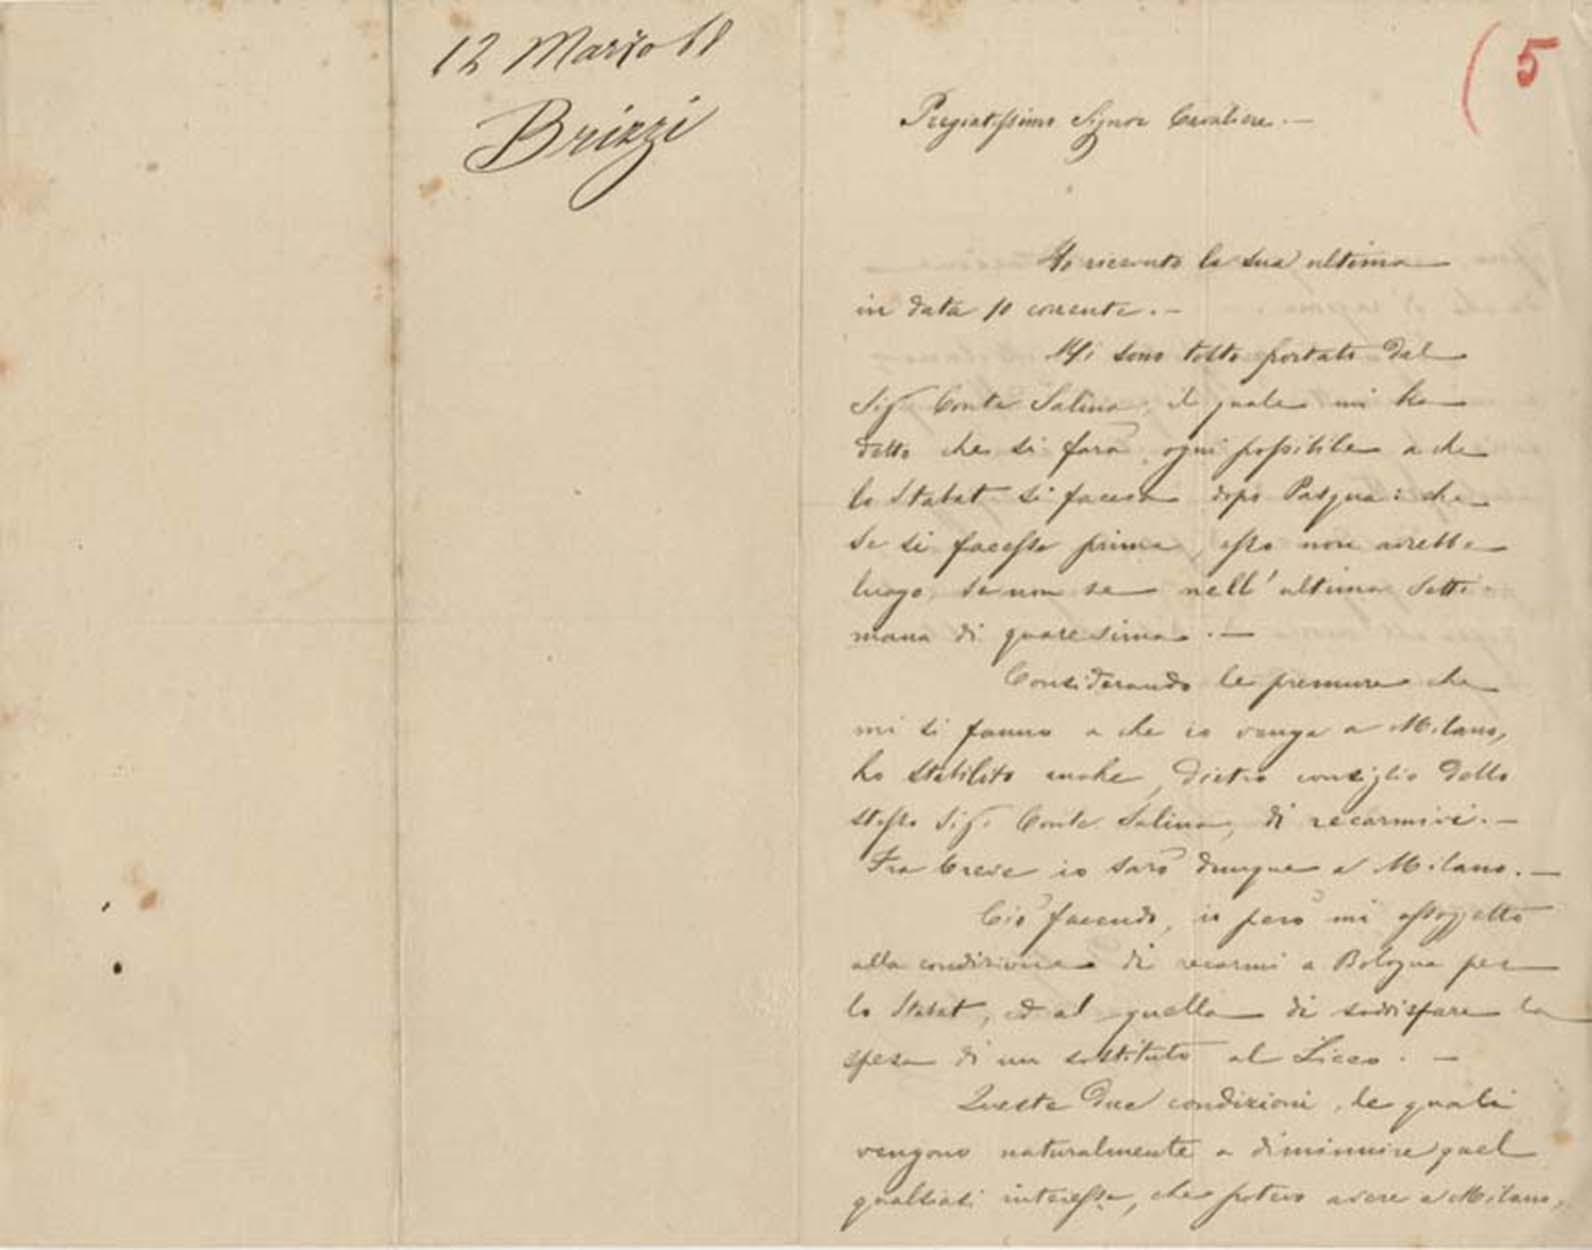 12 Marzo 68
Brizzi
( 5
Pregiatissimo Signor Cavaliere. —
Ho ricevuto la sua ultima
in data 10 corrente. —
Mi sono tosto portato dal
Sig. Conte Salina, il quale mi ha
detto che si farà ogni possibile a che
lo Stabat si faccia dopo Pasqua: che
se si facesse prima, esso non avrebbe
luogo, se non se nell'ultima setti-
mana di quaresima. —
Considerando le premure che
mi si fanno a che io venga a Milano,
ho stabilito anche, dietro consiglio dello
stesso Sig. Conte Salina, di recarmivi. —
Fra breve io sarò dunque a Milano. —
Ciò facendo, io però mi assoggetto
alla condizione di recarmi a Bologna per
lo Stabat, ed a quella di soddisfare la
spesa di un sostituto al Liceo. —
Queste due condizioni, le quali
vengono naturalmente a diminuire quel
qualsiasi interesse, che potevo avere a Milano,